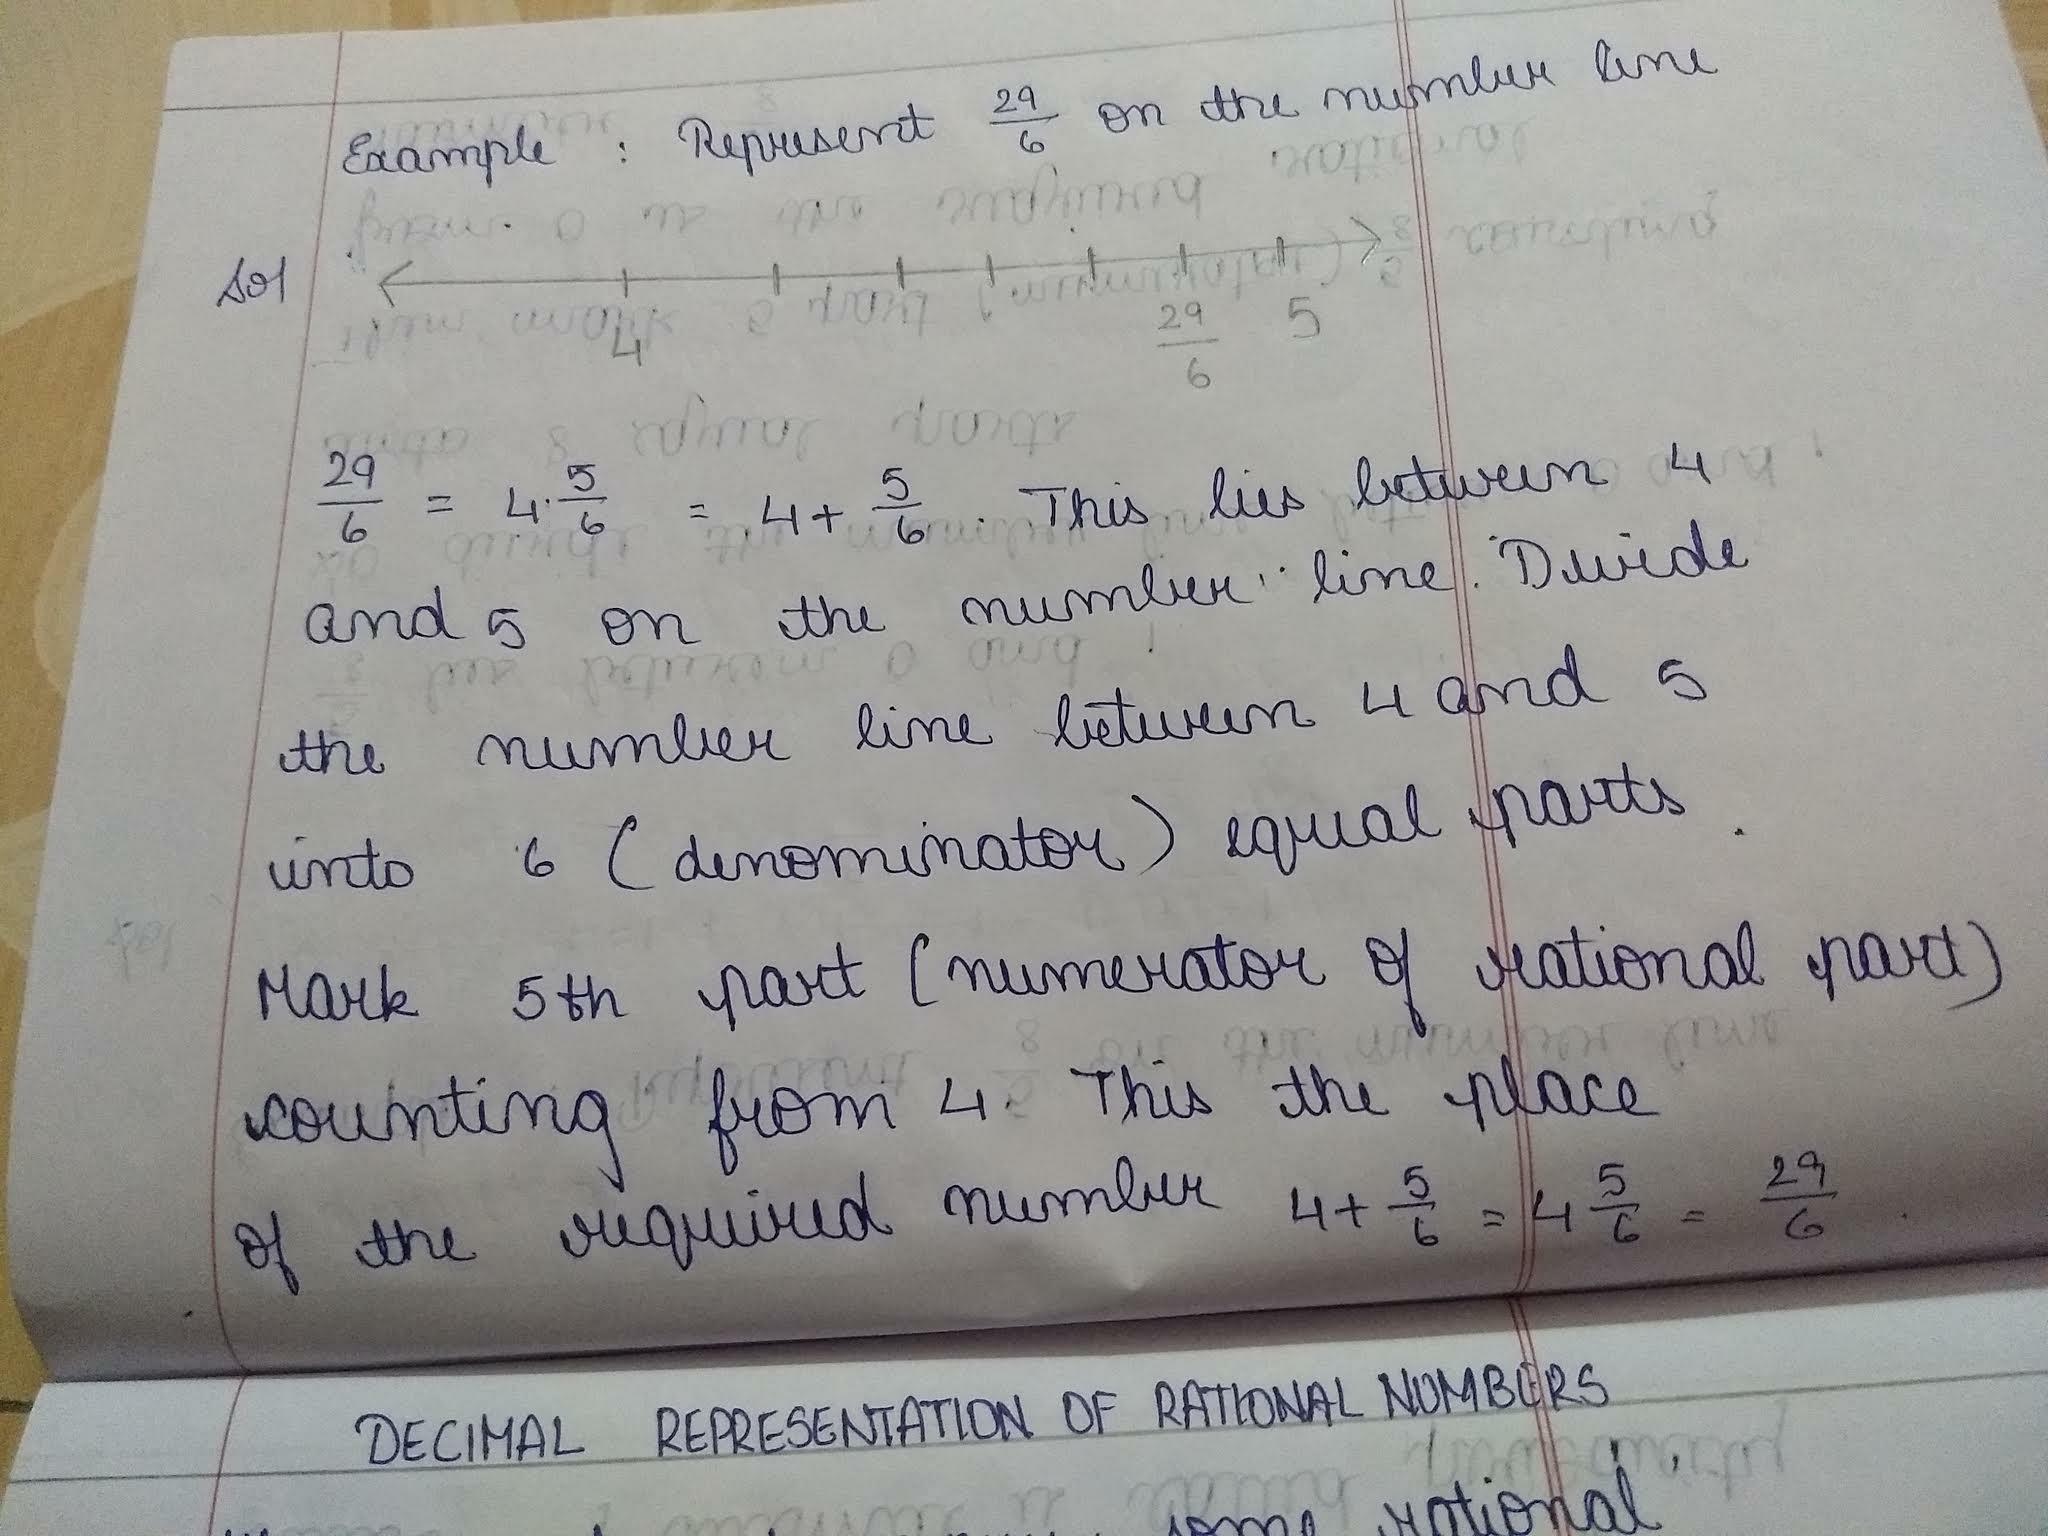 Example : Represent 29/6 on the number line
Sol
4 29/6 5
29/6 = 4 5/6 = 4 + 5/6 . This lies between 4
and 5 on the number line. Divide
the number line between 4 and 5
into 6 (denominator) equal parts.
Mark 5th part (numerator of rational part)
counting from 4. This the place
of the required number 4 + 5/6 = 4 5/6 = 29/6 .
DECIMAL REPRESENTATION OF RATIONAL NUMBERS
some rational